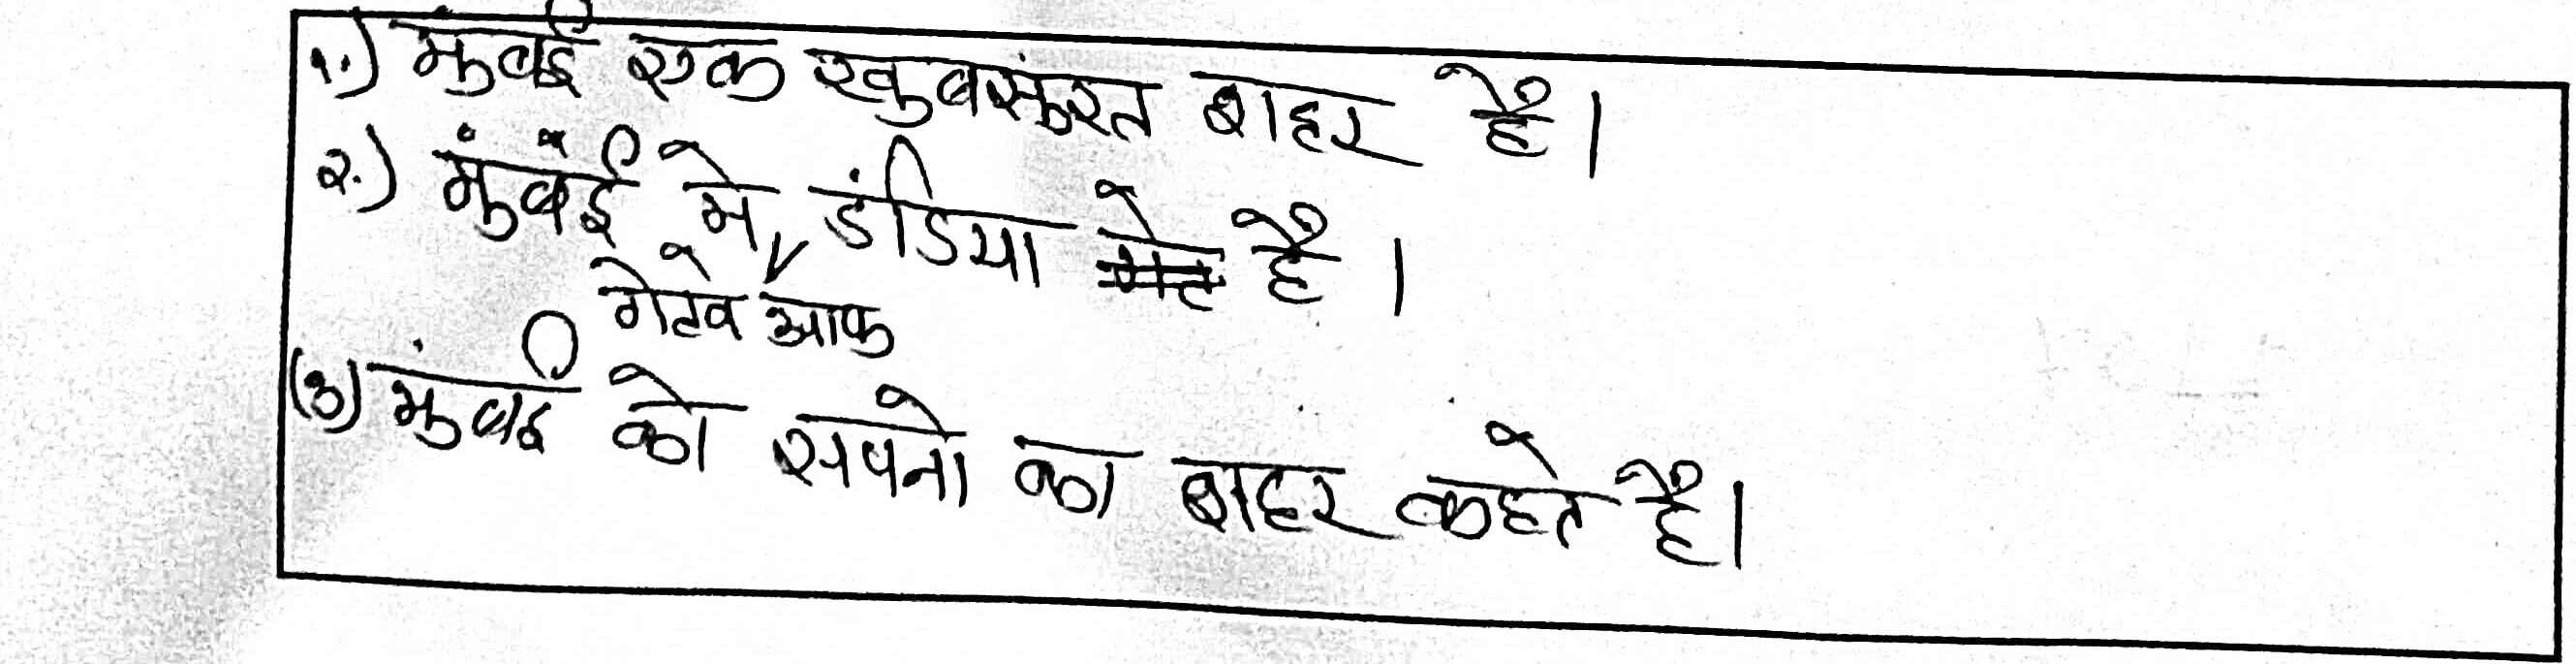 १.) मुंबई एक खुबसुंरत शहर है।
२.) मुंबंई मे, इंडिया है।
गेटवे आफ
(३) मुंबई को सपनो का शहर कहते है।